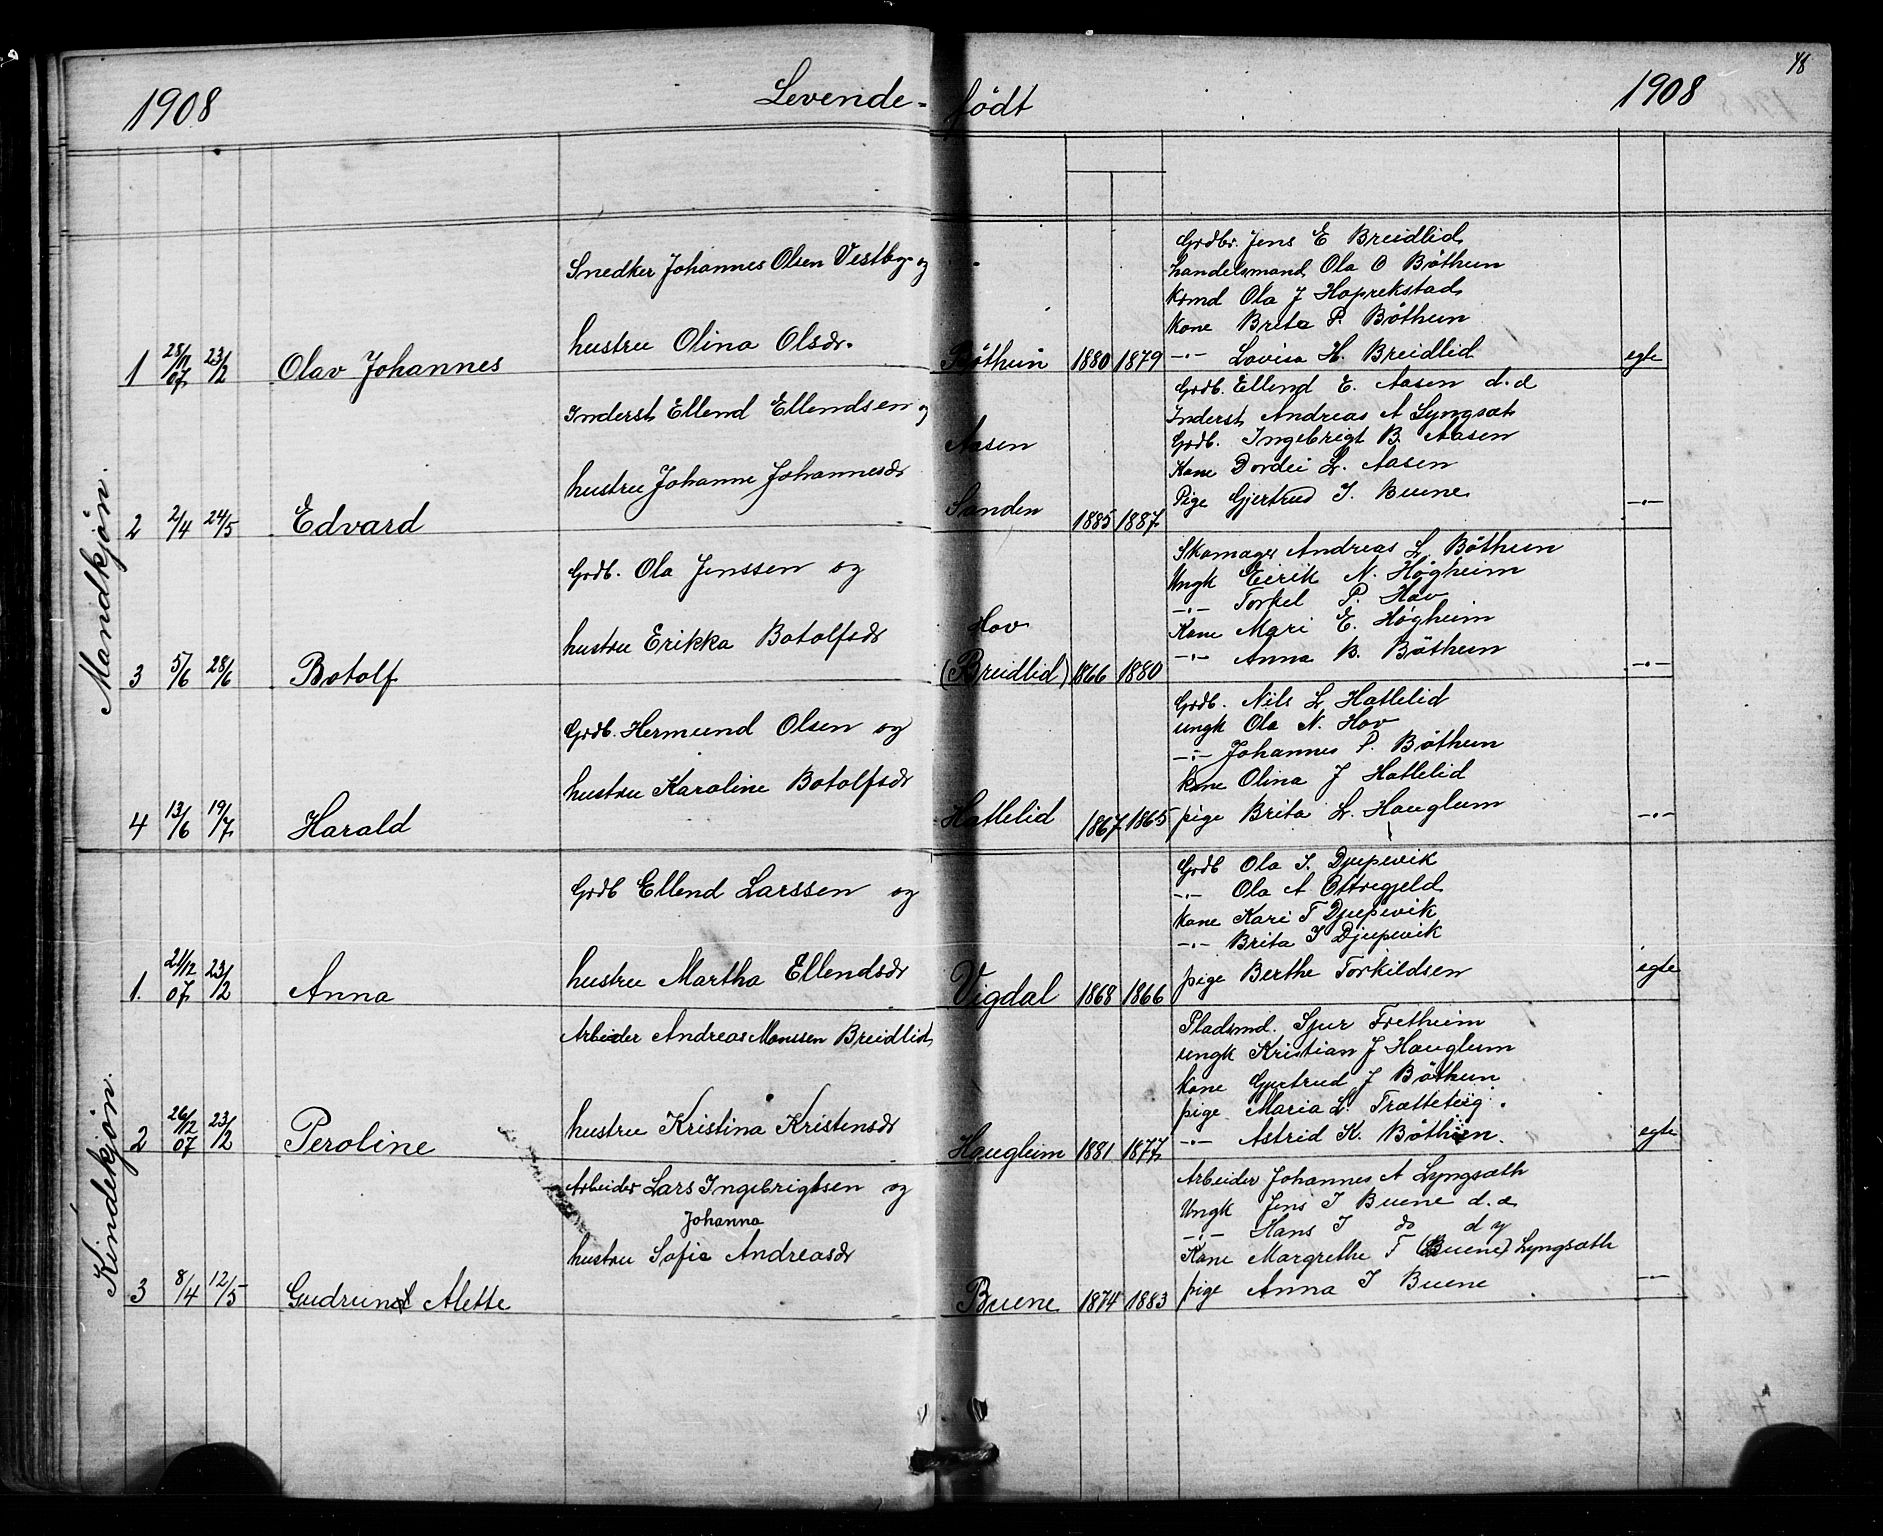 48
1908 Levende- født 1908
Mandkjøn.
Snedker Johannes Olsen Vestby og
hustru Olina Olsdr.
1 28/12 07 23/2 Olav Johannes Bøthun 1880 1879 egte
Grdbr. Jens E Breidlid
Handelsmand Ola O Bøthun
Kirmd Ola J Hoprekstad
Kone Brita P. Bøthun
-"- Lovisa H. Breidlid
Inderst Ellend Ellendsen og Aasen
hustru Johanne Johannesdr
2 2/4 24/5 Edvard Sanden 1885 1887 -"-
Grdb. Ellend E. Aasen d.e
Inderst Andreas A Lyngsæt
Grdb. Ingebrigt B. Aasen
Kone Dordei L. Aasen
Pige Gjertrud I. Buene
Grdb. Ola Jenssen og Hov
hustru Erikka Botolfsdr
3 5/6 28/6 Botolf (Breidlid) 1866 1880 -"-
Skomager Andreas L. Bøthun
Ungk Eirik N. Høgheim
-"- Torkel P. Hov
Kone Mari E. Høgheim
-"- Anna B. Bøthun
Grdb. Hermund Olsen og
hustru Karoline Botolfsdr
4 13/6 19/7 Harald Hatlelid 1867 1865 -"-
Grdb. Nils L. Hatlelid
ungk Ola N. Hov
-"- Johannes P. Bøthun
kone Olina J Hatlelid
pige Brita L. Hauglum
Kindekjøn.
Grdb Ellend Larssen og
hustru Martha Ellendsdr
1. 21/12 07 23/2 Anna Vigdal 1868 1866 egte
Grdb Ola I. Djupevik
-"- Ola A Ottregjeld
Kone Kari T Djupevik
-"- Brita I Djupevik
pige Berthe Torkildsen
Arbeider Andreas Monssen Breidlid
hustru Kristina Kristensdr
2 26/12 07 23/2 Peroline Haugleim 1881 1877 egte
Pladsmd. Sjur Fretheim
ungk Kristian J Hauglum
Kone Gjertrud J Bøthun
pige Maria L. Trætteteig
-"- Astrid K. Bøthun.
Arbeider Lars Ingebrigtsen og
Johanna
hustru Sofie Andreasdr
3 8/4 12/5 Gudrun Alette Buene 1874 1883 -"-
Arbeider Johannes A Lyngsæth
Ungk Jens I Buene d.e
-"- Hans I do d y
Kone Margrethe T (Buene) Lyngsæth
pige Anna I Buene